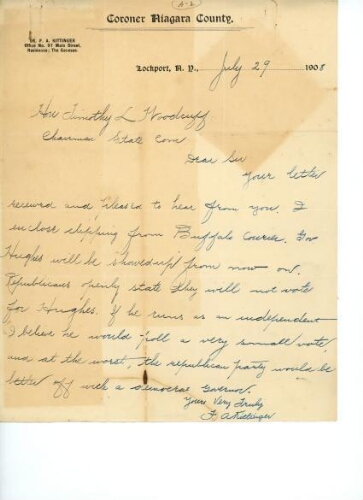 A-2
Coroner Niagara County.
DR. F. A. KITTINGER
Office No. 57 Main Street,
Residence: The Genesee.
Lockport, N. Y., July 29 1908
Hon Timothy L Woodruff
Chairman State Com
Dear Sir
Your letter
received and pleased to hear from you. I
enclose clipping from Buffalo Courier. Gov
Hughes will be shown up from now on.
Republicans openly state they will not vote
for Hughes. If he runs as an independent
I believe he would poll a very small vote
and at the worst, the republican party would be
better off with a democrat Governor.
Yours Very Truly
F. A Kittinger